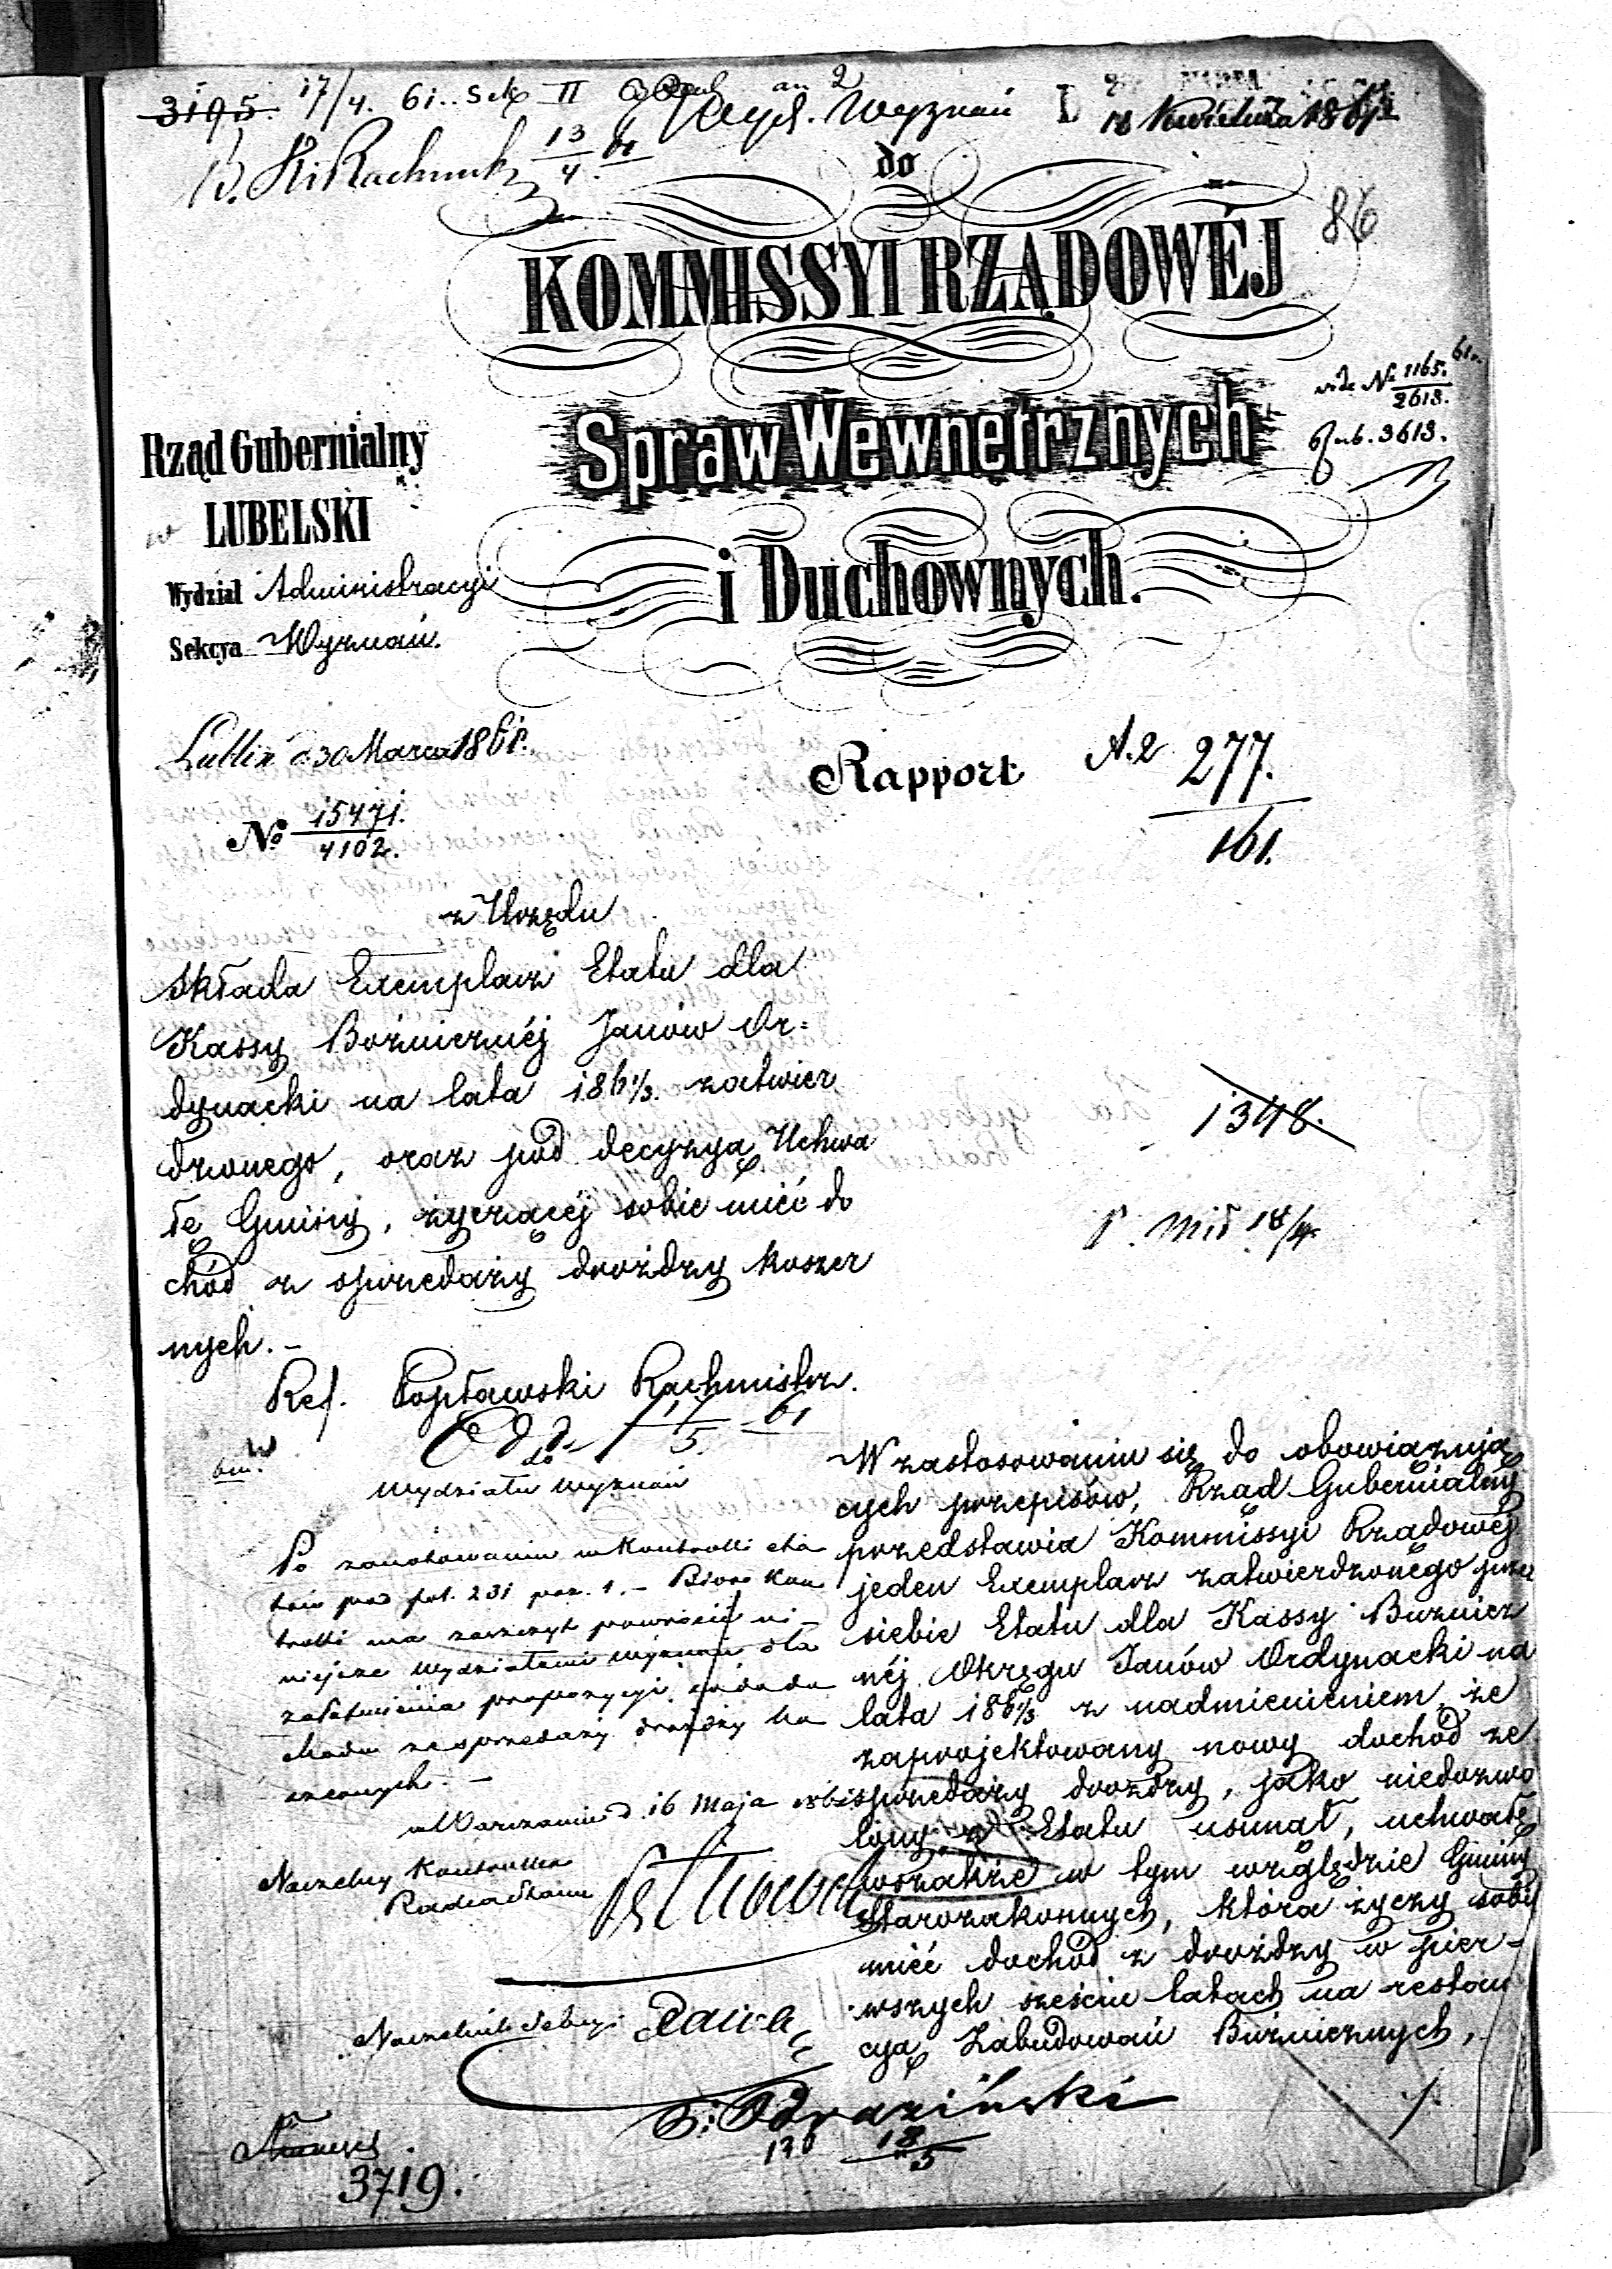 3195. 17/4. 61. Sek II
Wyd. Wyznań
18 Kwietnia 1861
13/4 61
do
86
KOMMISSYI RZĄDOWÉJ
Spraw Wewnętrznych
i Duchownych.
vide № 1165/2613. 61
3613.
Rząd Gubernialny
LUBELSKI
Wydział Administracyi
Sekcya Wyznań.
Lublin d 30 Marca 1861.
№ 15471./4102.
Rapport
A.2 277./161.
z Urzędu
Składa Exemplarz Etatu dla
Kassy Bożniczнéj Janów Or=
dynacki na lata 186 1/3. zatwier
dzonego, oraz pod decyzyą Uchwa
łę Gminy, życzącéj sobie mieć do
chód z sprzedaży drożdży koszer
nych. –
1348.
18/4
Ref. Popławski Rachmistrz.
17/5. 61
do
Wydziału Wyznań
Po zanotowaniu w kontrolli eta
tów pod fol. 231 poz. 1. – Biuro Kon
trolli ma zaszczyt powrócić ni–
niejsze Wydziałowi Wyznań dla
załatwienia propozycyi co do do
chodu ze sprzedaży drożdży ko
szernych. –
w Warszawie d. 16 Maja 1861
Naczelny Kontroller
Radca Stanu
Naczelnik Sekcyi
W zastosowaniu się do obowiązują
cych przepisów, Rząd Gubernialny
przedstawia Kommissyi Rządowéj
jeden Exemplarz zatwierdzonego przez
siebie Etatu dla Kassy Bużnicz
néj Okręgu Janów Ordynacki na
lata 186 1/3 z nadmienieniem, że
zaprojektowany nowy dochód ze
sprzedaży drożdży, jako niedozwo
lony z Etatu usunął, uchwałę
wszakże w tym względzie Gminy
Starozakonnych, która życzy sobie
mieć dochód z drożdży w pier–
wszych sześciu latach na restau
cyą Zabudowań Bużnicznych,
./.
18/5
3719.